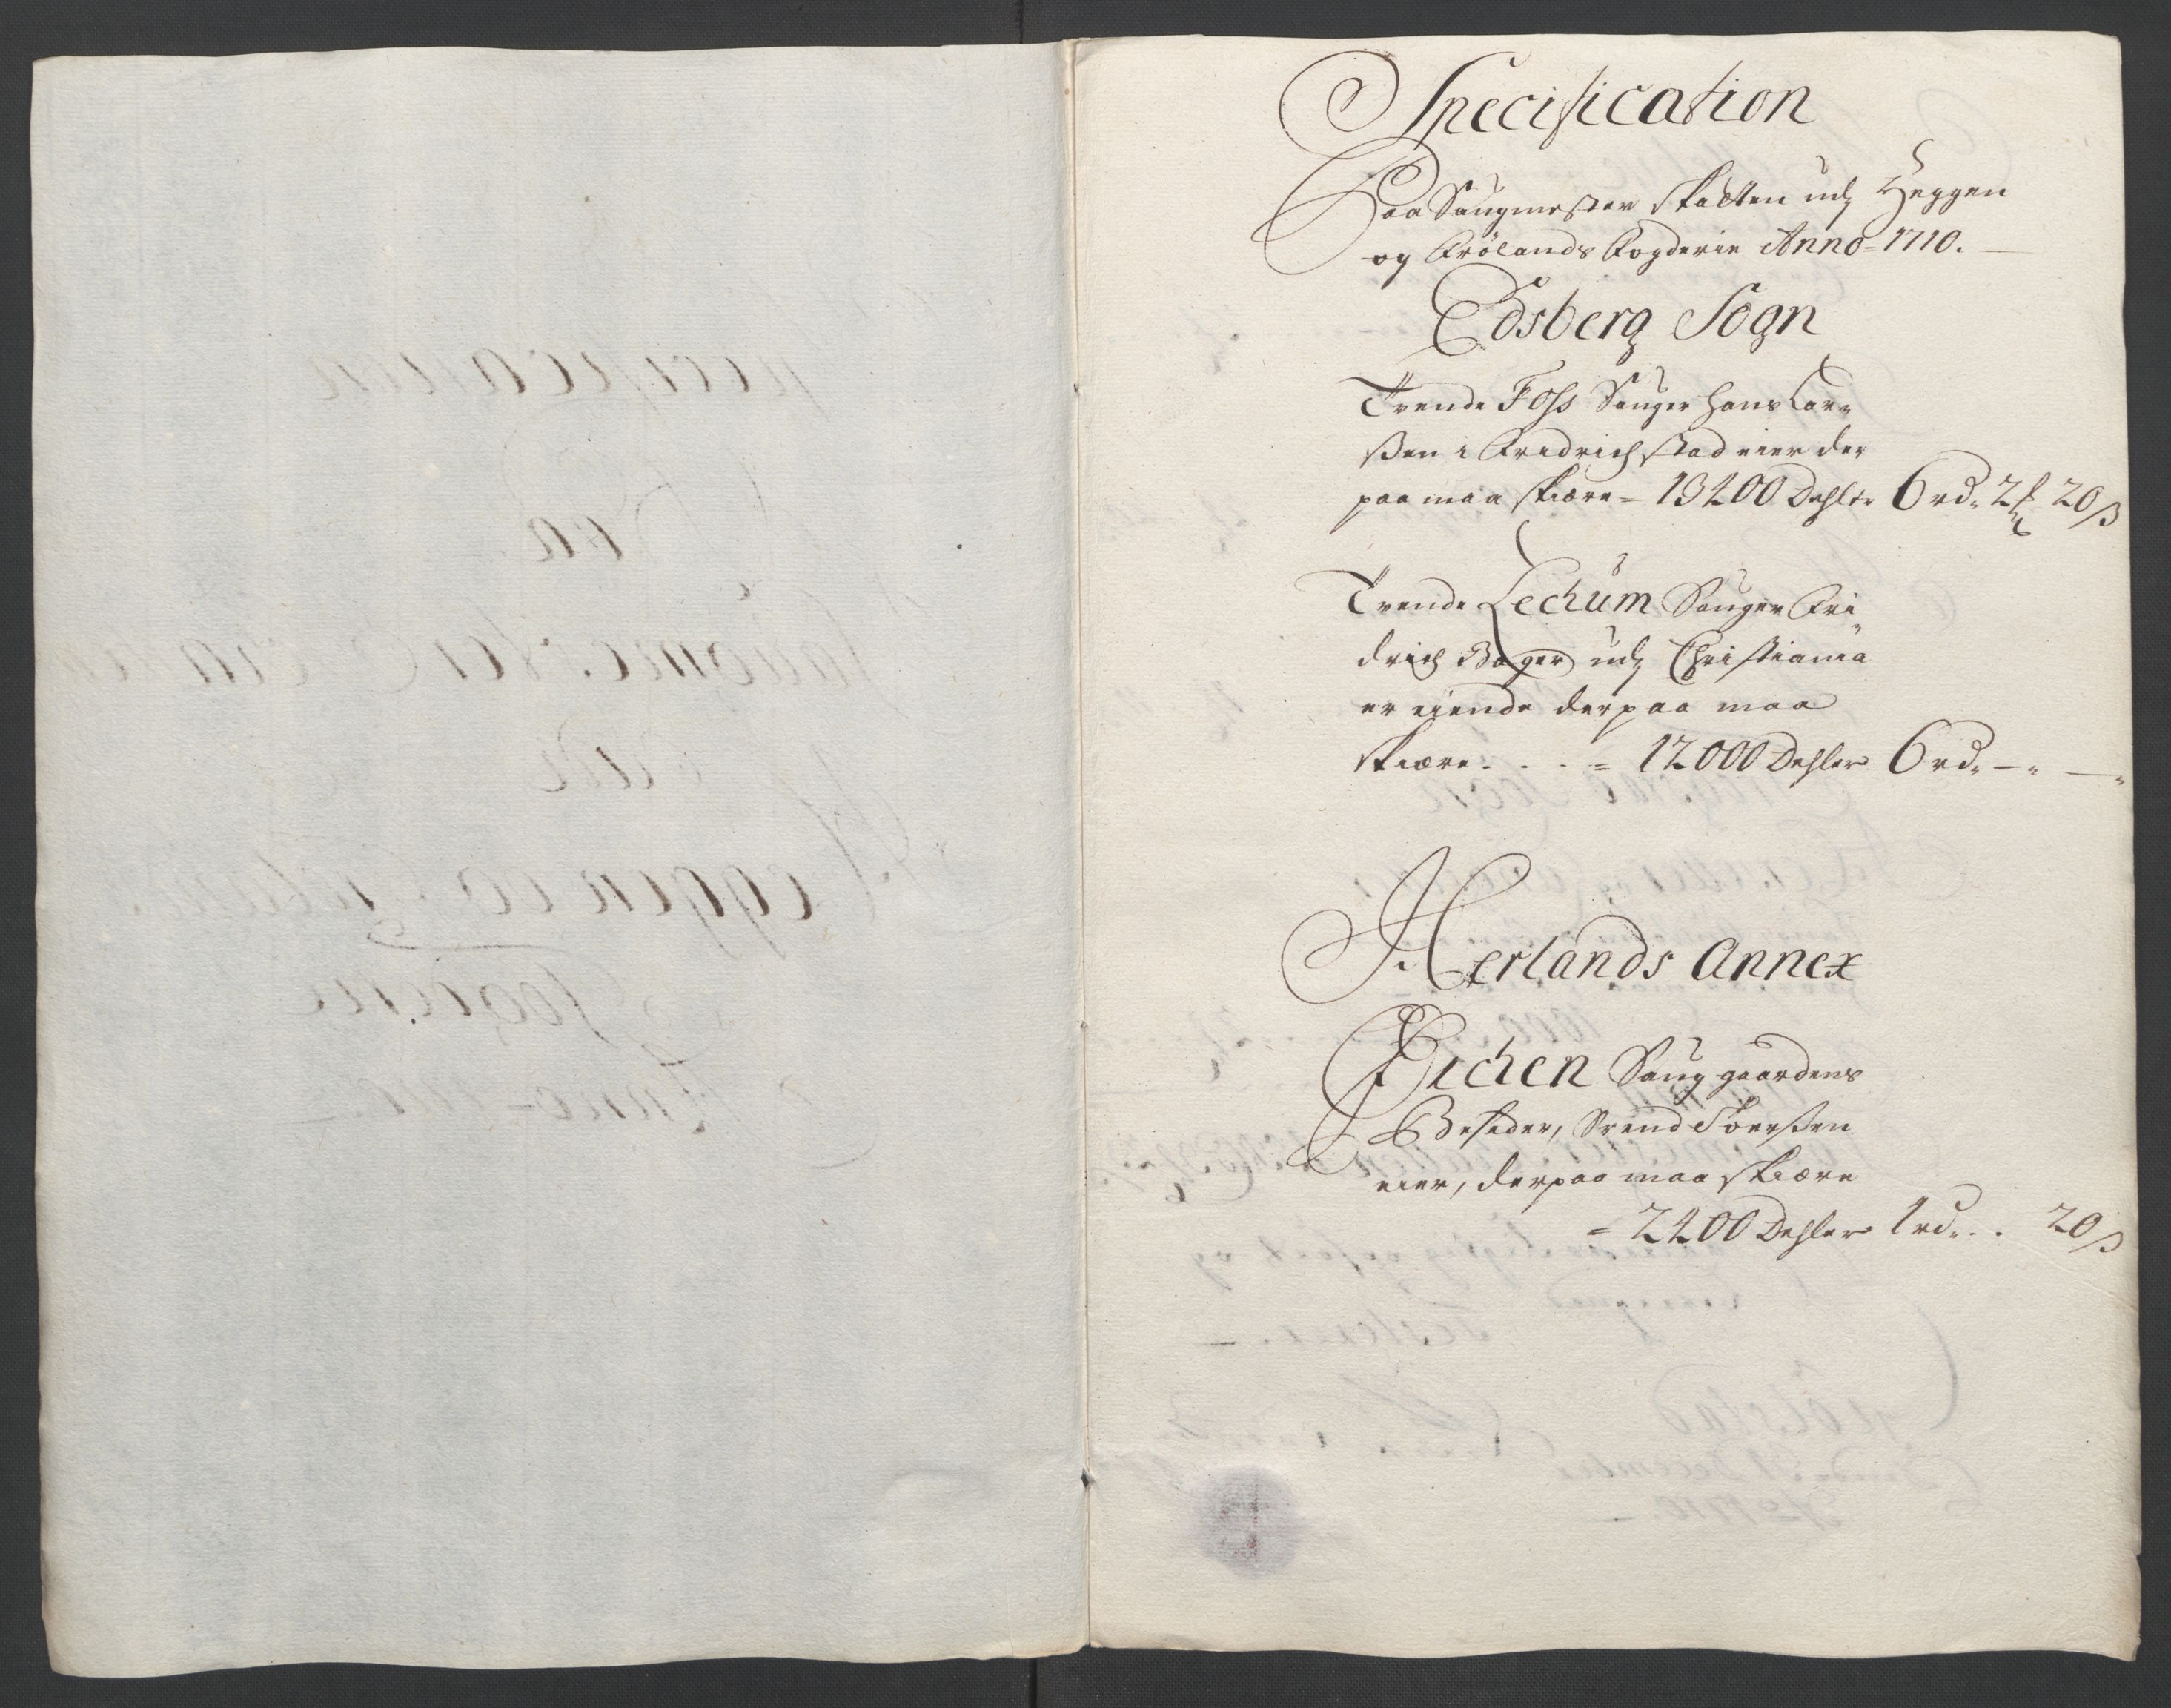 Specification
Paa Saugmester skatten udj Heggen
og Frølands Fogderie Anno-1710.
Edsberg Sogn
Trende Foss Sauger Hans Lar-
ßen i Fredrichstad eier der
paa maa skiære - 13400 Dehler 6 rd. 2 ℔ 20 ß
Trende Lechum Sauger Fri
drich Bager udj Christiania
er eiende derpaa maa
skiære . . . = 12000 Dehler 6 rd. -. -.
Herlands Annex
Eichen Saug gaardens
Besider, Svend Toerßen
eier, derpaa maa skiære
= 2400 Dehler 1 rd. . . 20 ß